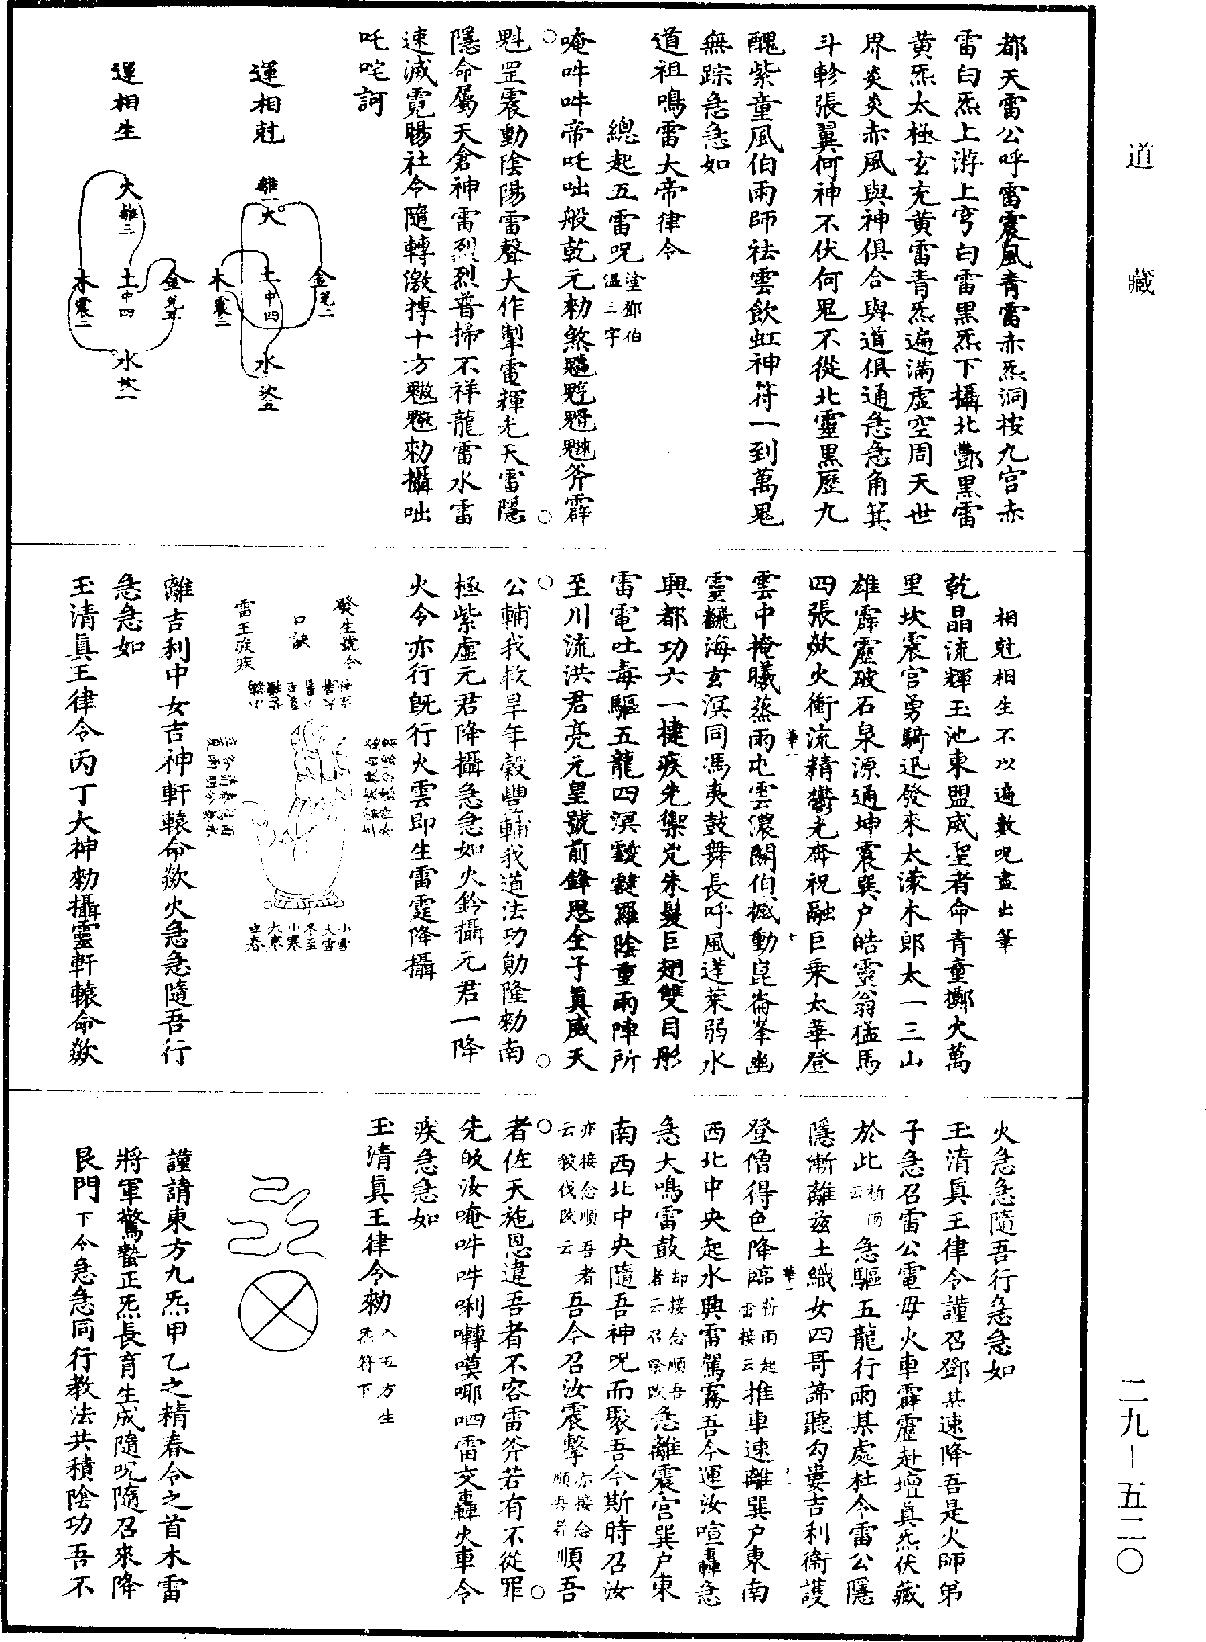 道藏
二九－五二〇
都天雷公呼雷震風青雷赤炁洞按九宮赤
雷白炁上游上穹白雷黑炁下攝北酆黑雷
黃炁太極玄充黃雷青炁遍滿虛空周天世
界炎炎赤風與神俱合與道俱通急急角箕
斗軫張翼何神不伏何鬼不從北靈黑歷九
醜紫童風伯雨師祛雲飲虹神符一到萬鬼
無踪急急如
道祖鳴雷大帝律令
總起五雷呪
塗鄧伯
溫三字
唵吽吽帝吒咄般乾元勑煞斧霹
魁罡震動陰陽雷聲大作掣電輝光天雷隱
隱命屬天倉神雷烈烈普掃不祥龍雷水雷
速減霓暘社令隨轉激搏十方勑攝咄
吒咤訶
運相尅
離一火
金兌二
土中四
木震三
水坎五
運相生
火離三
金兌五
土中四
木震二
水坎一
相尅相生不以遍數呪盡出筆
乾晶流輝玉池東盟威聖者命青童擲火萬
里坎震宮勇騎迅發來太濛木郎太一三山
雄霹靂破石泉源通坤震巽户皓靈翁猛馬
四張欻火衝流精鬱光奔祝融巨乘太華登
雲中掩曦蒸雨屯雲濃闕伯撼動崑崙峯幽
靈翻海玄溟同馮夷鼓舞長呼風蓬萊弱水
興都功六一捷疾先禦兇朱髮巨翅雙目彤
雷電吐毒驅五龍四溟羅陰重雨陣所
至川流洪君亮元皇號前鋒思全子真威天
公輔我救旱年穀豐輔我道法功勛隆勑南
極紫虛元君降攝急急如火鈴攝元君一降
火令亦行既行火雲即生雷霆降攝
發生號令
口訣
雷王疾疾
小雪
大雪
冬至
小寒
大寒
立春
離吉利中女吉神軒轅命欻火急急隨吾行
急急如
玉清真王律令丙丁大神勑攝靈軒轅命欻
火急急隨吾行急急如
玉清真王律令謹召鄧某速降吾是火師弟
子急召雷公電母火車霹靂赴壇真炁伏藏
於此
祈雨
云
急驅五龍行雨某處社令雷公隱
隱漸離兹土織女四哥諦聽勾婁吉利衞護
登僧得色降臨
祈雨起
雷接云
推車速離巽户東南
西北中央起水興雷駕霧吾今運汝喧轟急
急大鳴雷鼓
却接念順吾
者云召祭改
急離震宮巽户東
南西北中央隨吾神呪而聚吾今斯時召汝
亦接念順吾者
云殺伐改云
吾令召汝震擊
亦接念
順吾者
順吾
者佐天施恩違吾者不容雷斧若有不從罪
先攱汝唵吽吽唎囀嗼哪呬雷交轟火車令
疾急急如
玉清真王律令勑
入五方生
炁符下
謹請東方九炁甲乙之精春令之首木雷
將軍驚蟄正炁長育生成隨呪隨召來降
艮門下令急急同行教法共積陰功吾不